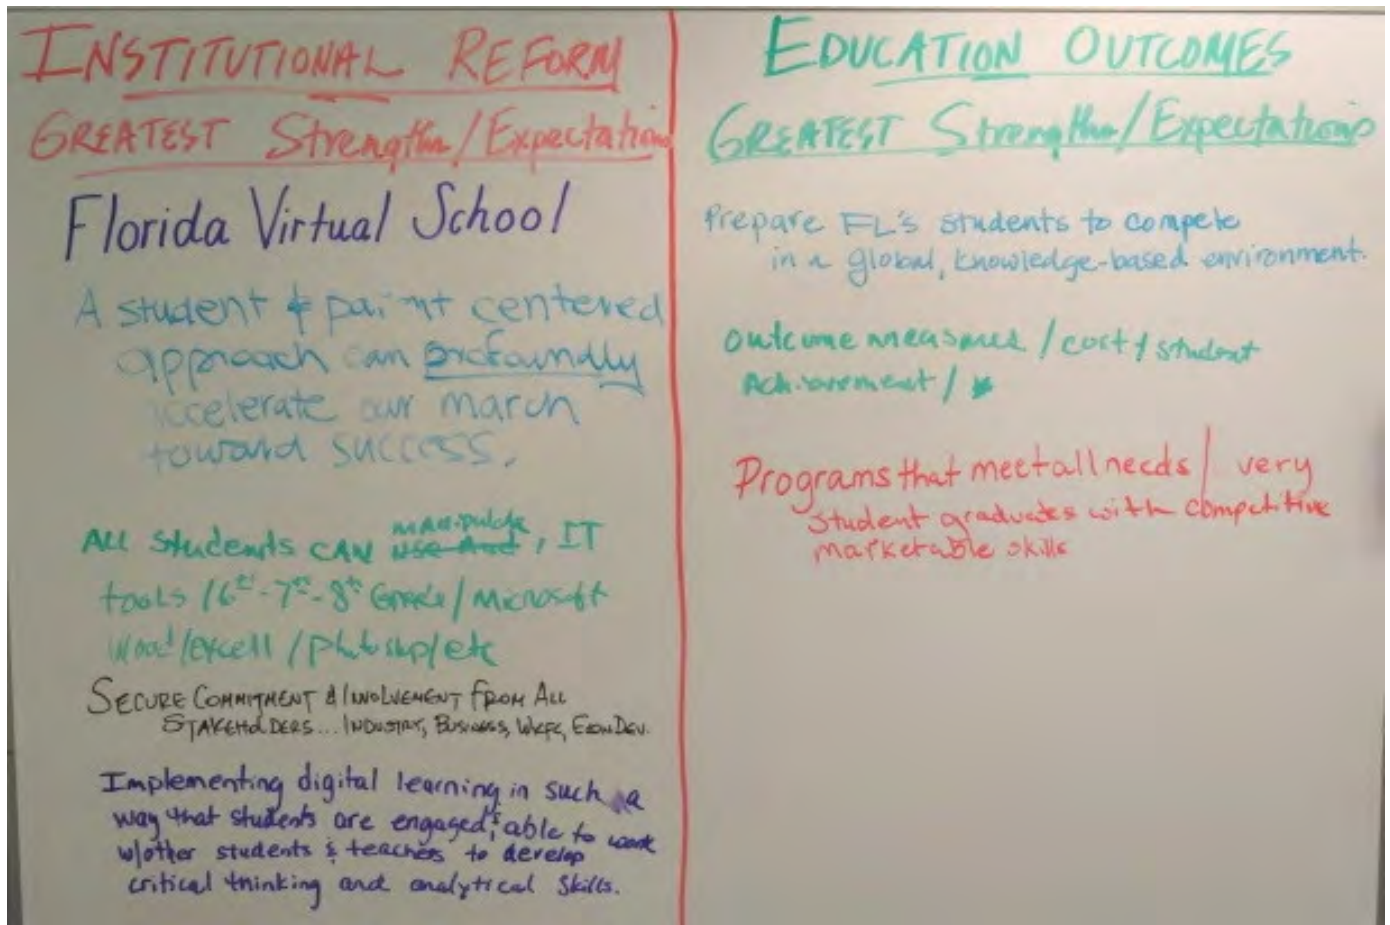 INSTITUTIONAL REFORM
GREATEST Strengths/Expectations
Florida Virtual School
A student & parent centered
approach can profoundly
accelerate our march
toward success.
ALL Students CAN manipulate, IT
tools /6th-7th-8th Grade/Microsoft
Word/excell/photoshop/etc
SECURE COMMITMENT & INVOLVEMENT FROM ALL
STAKEHOLDERS... INDUSTRY, BUSINESS, WKFC, ECON DEV.
Implementing digital learning in such a
way that students are engaged, & able to work
w/other students & teachers to develop
critical thinking and analytical skills.
EDUCATION OUTCOMES
GREATEST Strengths/Expectations
Prepare FL's students to compete
in a global, knowledge-based environment.
Outcome measures / cost / student
Achievement /
Programs that meet all needs / very
student graduates with competitive
marketable skills